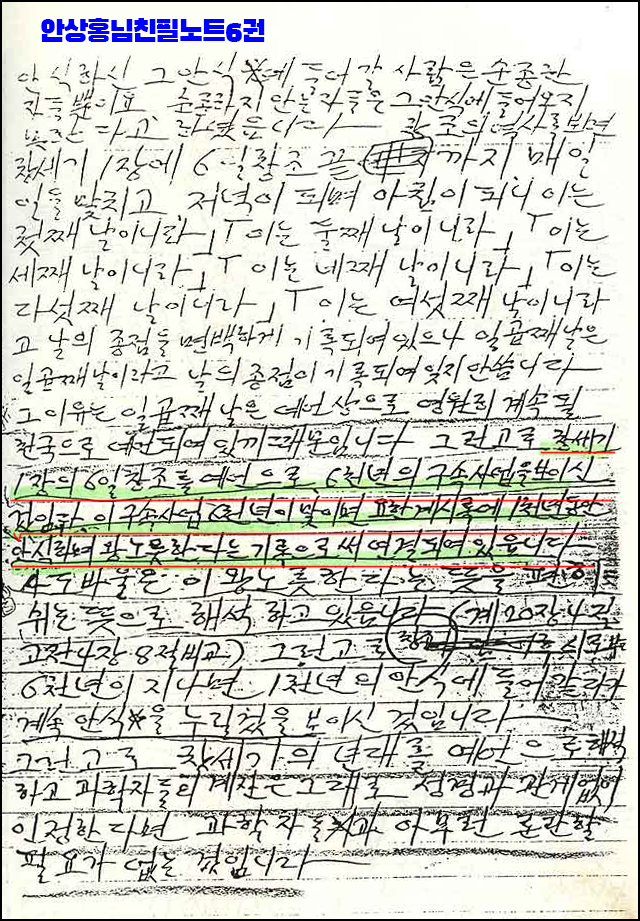 안상홍님친필노트6권
안식하신 그안식에 들어갈 사람은 순종한
자들뿐이요 순종하지 안는자들은 그안식에 들어오지
못한다고 하였읍니다
창세기 1장에 6일창조 끝 까지 매일
일을 맟치고 저녁이 되며 아침이 되니 이는
첫째 날이니라」「이는 둘째 날이니라」「이는
세째 날이니라」「이는 네째 날이니라」「이는
다섯째 날이니라」「이는 여섯째 날이니라
고 날의 종점을 면백하게 기록되여있으나 일곱째날은
일곱째날이라고 날의 종점이 기록되여잇지안씀니다
그이유는 일곱째날은 예언상으로 영원히 계속될
천국으로 예언되여있기때문입니다 그런고로 창세기
1장의 6일창조를 예언으로 6천년의 구속사업을보이신
것임니다 이 구속사업 6천년이 맟이면 요한계시록에 1천년동안
안식하며 왕노릇한다는 기록으로써 연결되여있읍니다
사도바울은 이 왕노릇한다는 뜻을 편히
쉬는 뜻으로 해석하고 있읍니다 (계20장4절
고전4장8절비교) 그런고로
6천년이 지나면 1천년의 안식에 들어갈터가
계속 안식을 누릴것을 보이신 것입니다
그런고로 창세기의 년대를 예언으로해석
하고 과학자들의 계산은그대로 성경과 관게없이
인정한다면 과학자들과 아무런 혼란할
필요가 없는 것입니다